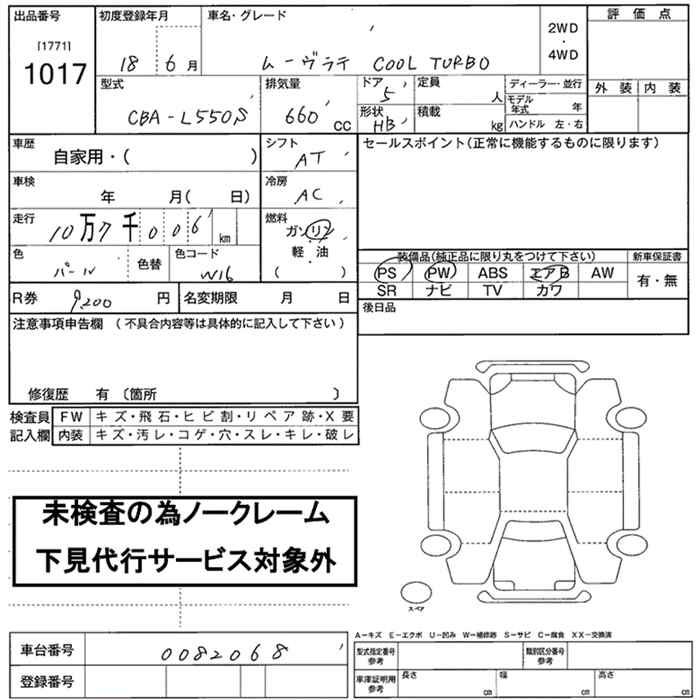 出品番号
[1771]
1017
初度登録年月
18 6 月
車名・グレード
ムーヴラテ COOL TURBO
2WD
・
4WD
評価点
外装 内装
型式
CBA-L550S
排気量
660 CC
ドア
5
形状
HB
定員
人
積載
kg
ディーラー・並行
モデル年式 年
ハンドル 左・右
車歴
自家用・( )
シフト
AT
セールスポイント(正常に機能するものに限ります)
車検
年 月( 日)
冷房
AC
走行
10万7千006 km
燃料
ガソリン
軽・油
( )
色
パール
色替
色コード
W16
装備品(純正品に限り丸をつけて下さい)
PS PW ABS エアB AW
SR ナビ TV カワ
新車保証書
有・無
R券 9,200 円
名変期限 月 日
後日品
注意事項申告欄 (不具合内容等は具体的に記入して下さい)
修復歴 有 〔箇所 〕
検査員記入欄
FW キズ・飛石・ヒビ割・リペア跡・X要
内装 キズ・汚レ・コゲ・穴・スレ・キレ・破レ
未検査の為ノークレーム
下見代行サービス対象外
スペア
A-キズ E-エクボ U-凹み W-補修跡 S-サビ C-腐食 XX-交換済
車台番号 0082068
登録番号
型式指定番号 参考
類別区分番号 参考
車庫証明用 参考
長さ cm
幅 cm
高さ cm